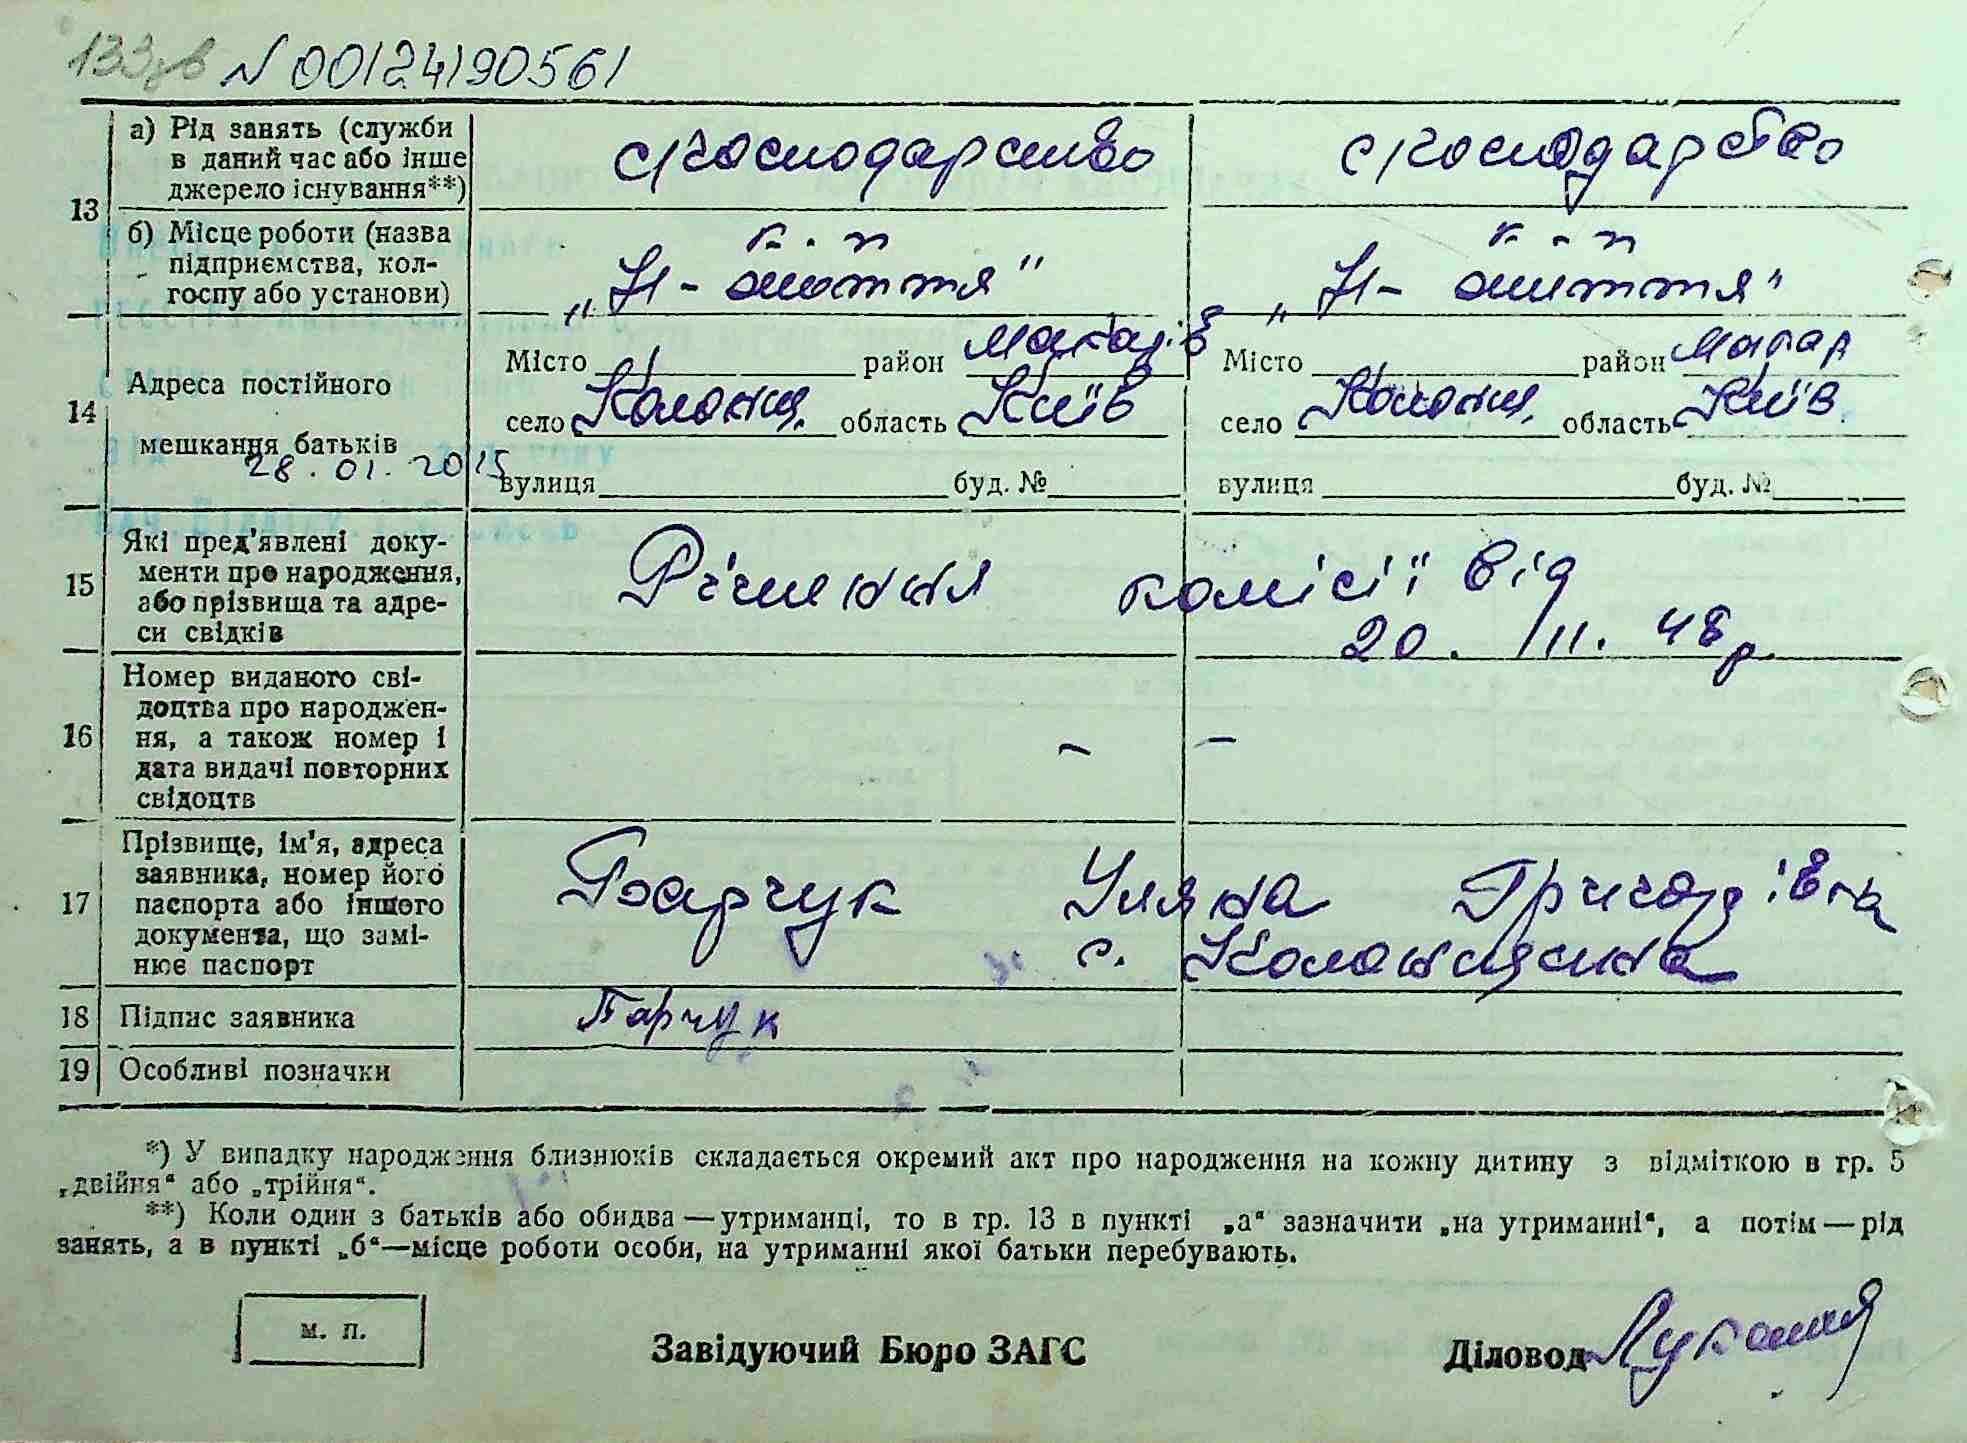 133зв N 00124190561
13
а) Рід занять (служби в даний час або інше джерело існування**)
с/господарство с/господарство
б) Місце роботи (назва підприємства, колгоспу або установи)
к-п к-п
„Н-життя" „Н-життя"
14
Адреса постійного мешкання батьків
28.01.2015
Місто район Макарів Місто район Макар
село Колонщ. область Київ село Колонщ. область Київ.
вулиця буд. № вулиця буд. №
15
Які пред'явлені документи про народження, або прізвища та адреси свідків
Рішення комісії від
20. /II. 48р.
16
Номер виданого свідоцтва про народження, а також номер і дата видачі повторних свідоцтв
- -
17
Прізвище, ім'я, адреса заявника, номер його паспорта або іншого документа, що замінює паспорт
Барчук Уляна Григорівна
с. Колонщина
18 Підпис заявника Барчук
19 Особливі позначки
*) У випадку народження близнюків складається окремий акт про народження на кожну дитину з відміткою в гр. 5
„двійня“ або „трійня“.
**) Коли один з батьків або обидва — утриманці, то в гр. 13 в пункті „а“ зазначити „на утриманні“, а потім — рід
занять, а в пункті „б“—місце роботи особи, на утриманні якої батьки перебувають.
м. п.
Завідуючий Бюро ЗАГС Діловод